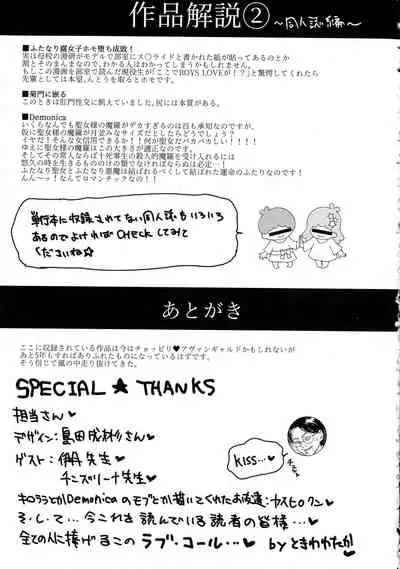 作品解説② ～同人誌編～
■ふたなり腐女子ホモ堕ち成敗！
実は母校の漫研がモデルで部室にス○ライドと書かれた紙が貼ってあるのとか
割とそのまんまなので、わかる人はわかってしまうかもしれません。
もしこの漫画を部室で読んだ現役生が「ここでBOYS LOVEが！？」と驚愕してくれたら
先輩としては本望、んとうを取るとホモです。
■菊門に嵌る
このときは肛門性交に飢えていました。尻には本質がある。
■Demonica
いくらなんでも聖女様の魔羅がデカすぎるのは百も承知なのですが、
仮に聖女様の魔羅が月並みなサイズだとしたらどうでしょう？
イヤだ！そんな女信用できるか！！何が聖女だバカバカしい！！！！
ゆえに聖女様の魔羅はこの大きさが適正なのです。
そしてその常人ならば十死零生の殺人的魔羅を受け入れるには
悠久の時を生きるもののけの類でなければならぬは必定…！
ふたなり聖女とふたなり悪魔は結ばれるべくして結ばれた運命のふたりなのです！
んん〜っ！なんてロマンチックなの！！
単行本に収録されてない同人誌もいろいろ
あるのでよければCHECKしてみて
くださいね☆
あとがき
ここに収録されている作品は今はチョッピリ♥アヴァンギャルドかもしれないが
あと5年もすればありふれたものになっているはずです。
そう信じて風の中走り抜けてきた。
SPECIAL★THANKS
担当さん♥
デザイン：さん♥
ゲスト：伊丹先生♥
チンズリーナ先生♥
KISS…♥
キララとかDemonicaのモブとか描いてくれたお友達：ヤスヒロクン♥
そ・し・て…今これを読んでいる読者の皆様…♥
全ての人に捧げるこのラブ・コール…♥ byときわわたか